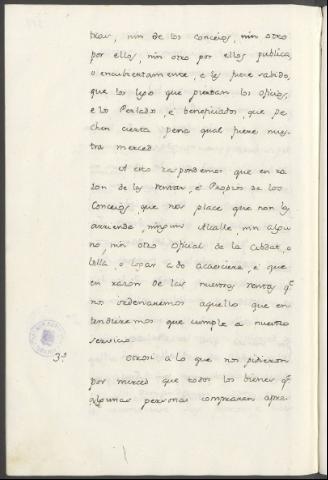 trar, nin de los conceios, nin otro
por ellos, nin otro por ellos publica,
o encubiertamente, e les fuere sabido,
que los legos que pierdan los oficios,
e los Perlados, e beneficiados, que pe-
chen cierta pena qual fuere nues-
tra merced
A esto respondemos que en ra-
zon de las rentas, e Propios de los
Conceios, que nos place que non los
arriende, ninguno Alcalle, nin algu-
no, nin otro oficial de la Cibdat, o
Villa, o logar ado acaesciere, e que
en razón de las nuestras rentas q.e
nos ordenaremos aquello que en-
tendieremos que cumple a nuestro
servicio.
3.ª Otrosi a lo que nos pidieron
por merced que todos los bienes q.e
algunas personas compraren apre-